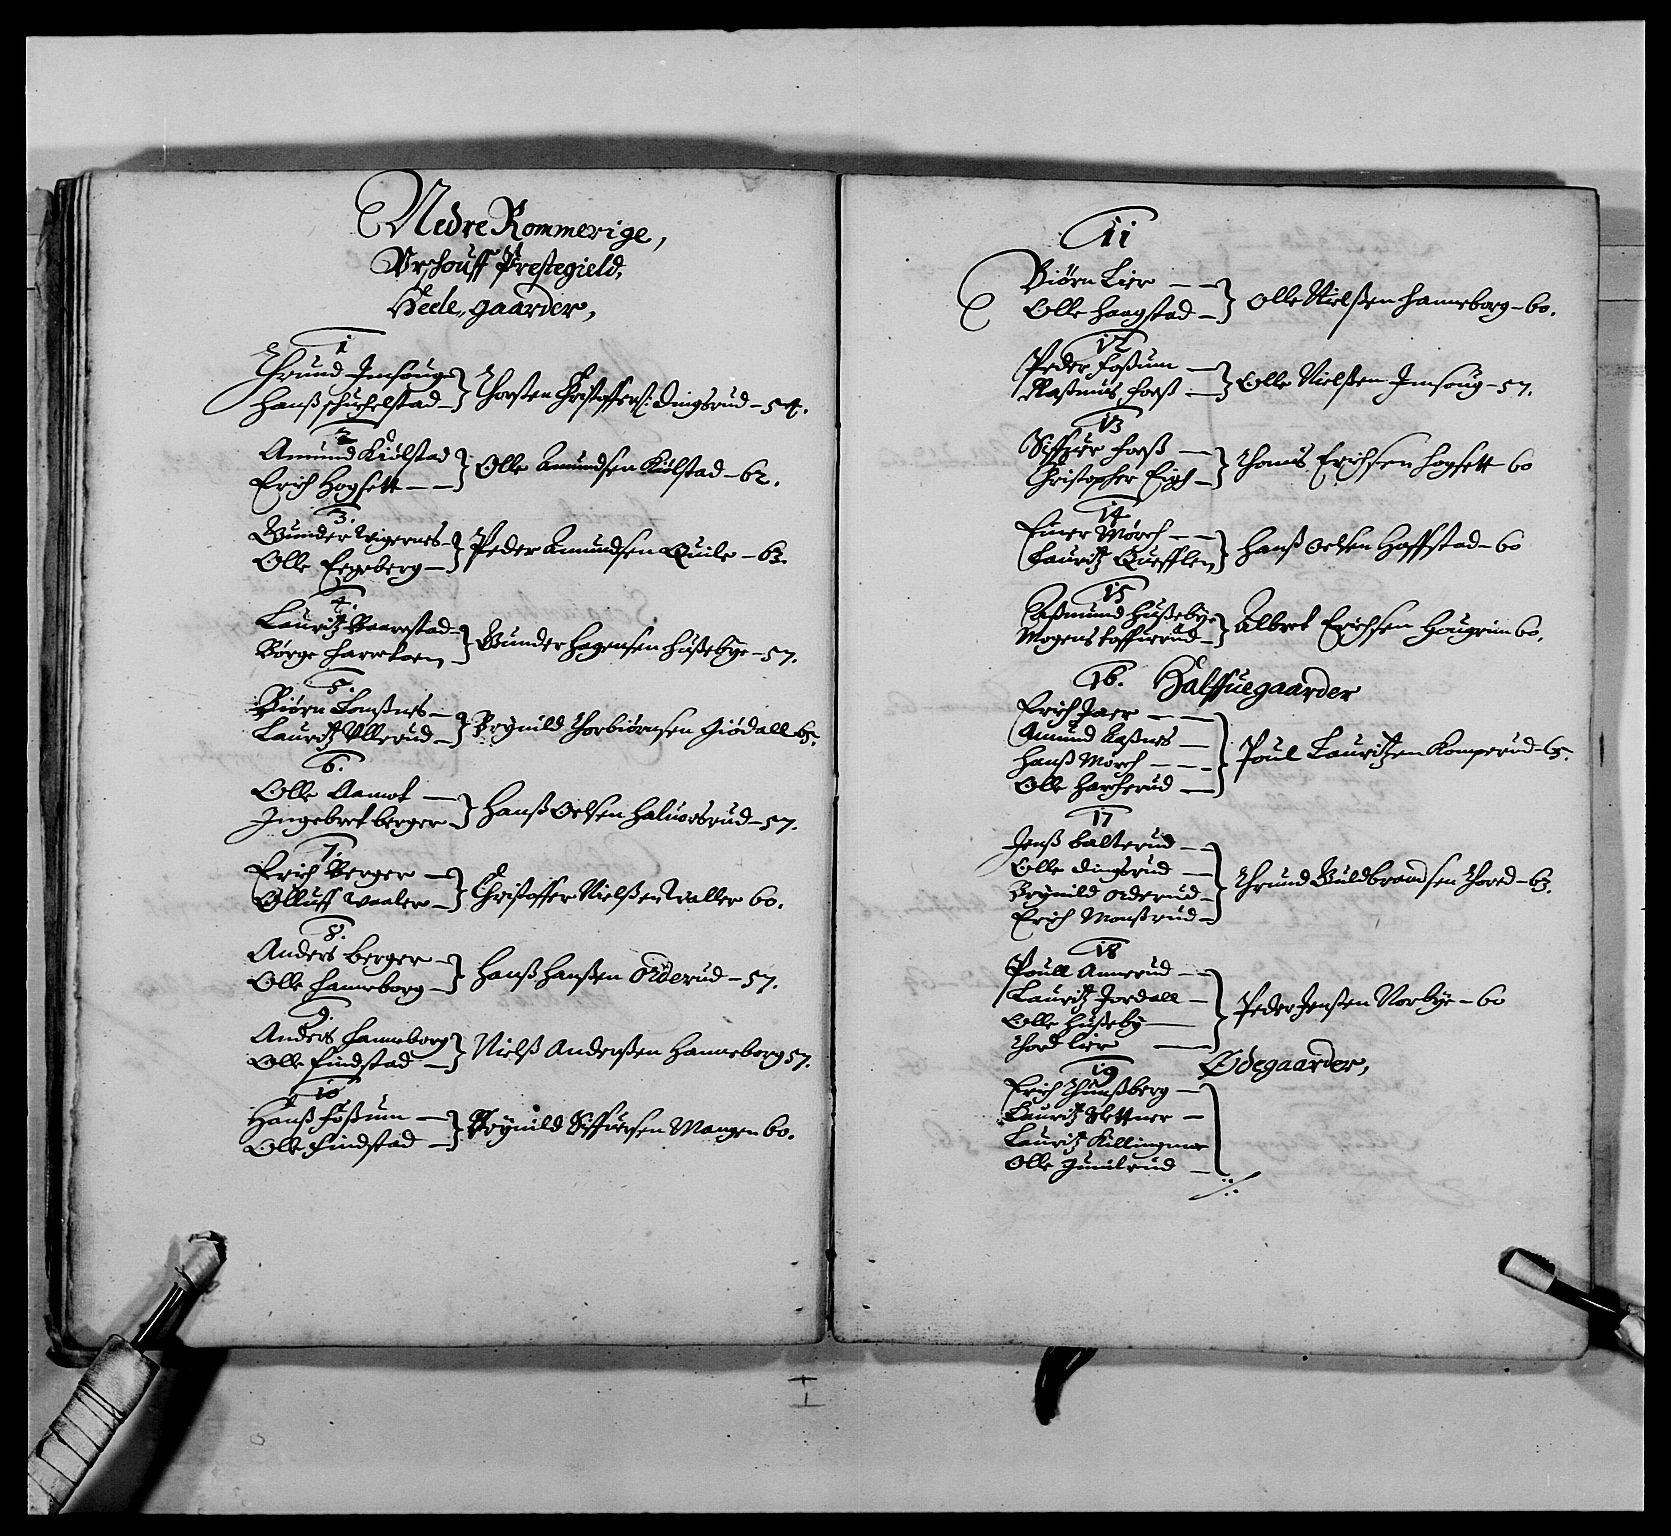 Nedre Rommerige,
Urschouff Prestegield,
Heele gaarder,
1
Thrund Imsoug
Hanß Schuchelstad } Thorsten Christoffers: Dingsrud - 54.
2
Amund Kiølstad
Erich Hogsett } Olle Amundsen Kiølstad - 62.
3.
Gunder Wigernes
Olle Eegeberg } Peder Amundsen Quile - 63.
4.
Lauritz Baarestad
Børge } Gunder Hagensen Hußebye - 57.
5.
Biørn Lomßnes
Lauritz Ullerud } Brynild Thorbiørnsen Giødall 65.
6.
Olle Aamot
Ingebret Berger } Hanß Oelsen Haluorsrud - 57.
7.
Erich Berger
Olluff Waaler } Christoffer Nielßen Waller 60.
8.
Anders Berger
Olle Hanneborg } Hanß Hanßen Orderud - 57.
9.
Anders Hanneborg
Olle Findstad } Nielß Anderßen Hanneborg 57.
10
Hanß Foßum
Olle Findstad } Brynild Siffuersen Mangen 60.
11
Biørn Lier
Olle Haagstad } Olle Nielßen Hanneborg - 60.
12
Peder Foßum
Raßmus Foeß } Olle Nielßen Imsoug - 57.
13
Siffuer Foeß
Christopher Eigh } Thomis Erichsen Hogsett 60
14
Einer Mørch
Lauritz Queffslen } Hanß Oelsen Hoffstad - 60
15
Aßmund Hußebye
Mogens Toffuerud } Albret Erichsen Hougrim 60.
16. Halffuegaarder
Erich Jaer
Amund Aaßnes
Hanß Mørch
Olle Harcherud } Poul Lauritzen Komperud - 65.
17
Jenß Balterud
Olle Dingsrud
Brynild Orderud
Erich Monsrud } Thrund Guldbrandsen Thored - 63.
18
Poull Annerud
Lauritz Jordall
Olle Hußeby
Thord Lier } Peder Jenßen Norbye - 60
Ødegaarder,
19
Erich Thunßberg
Lauritz Slettner
Lauritz Killingmoe
Olle Junilrud